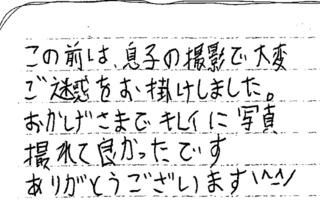 この前は、息子の撮影で大変
ご迷惑をお掛けしました。
おかげさまでキレイに写真
撮れて良かったです
ありがとうございます\^ニ^/